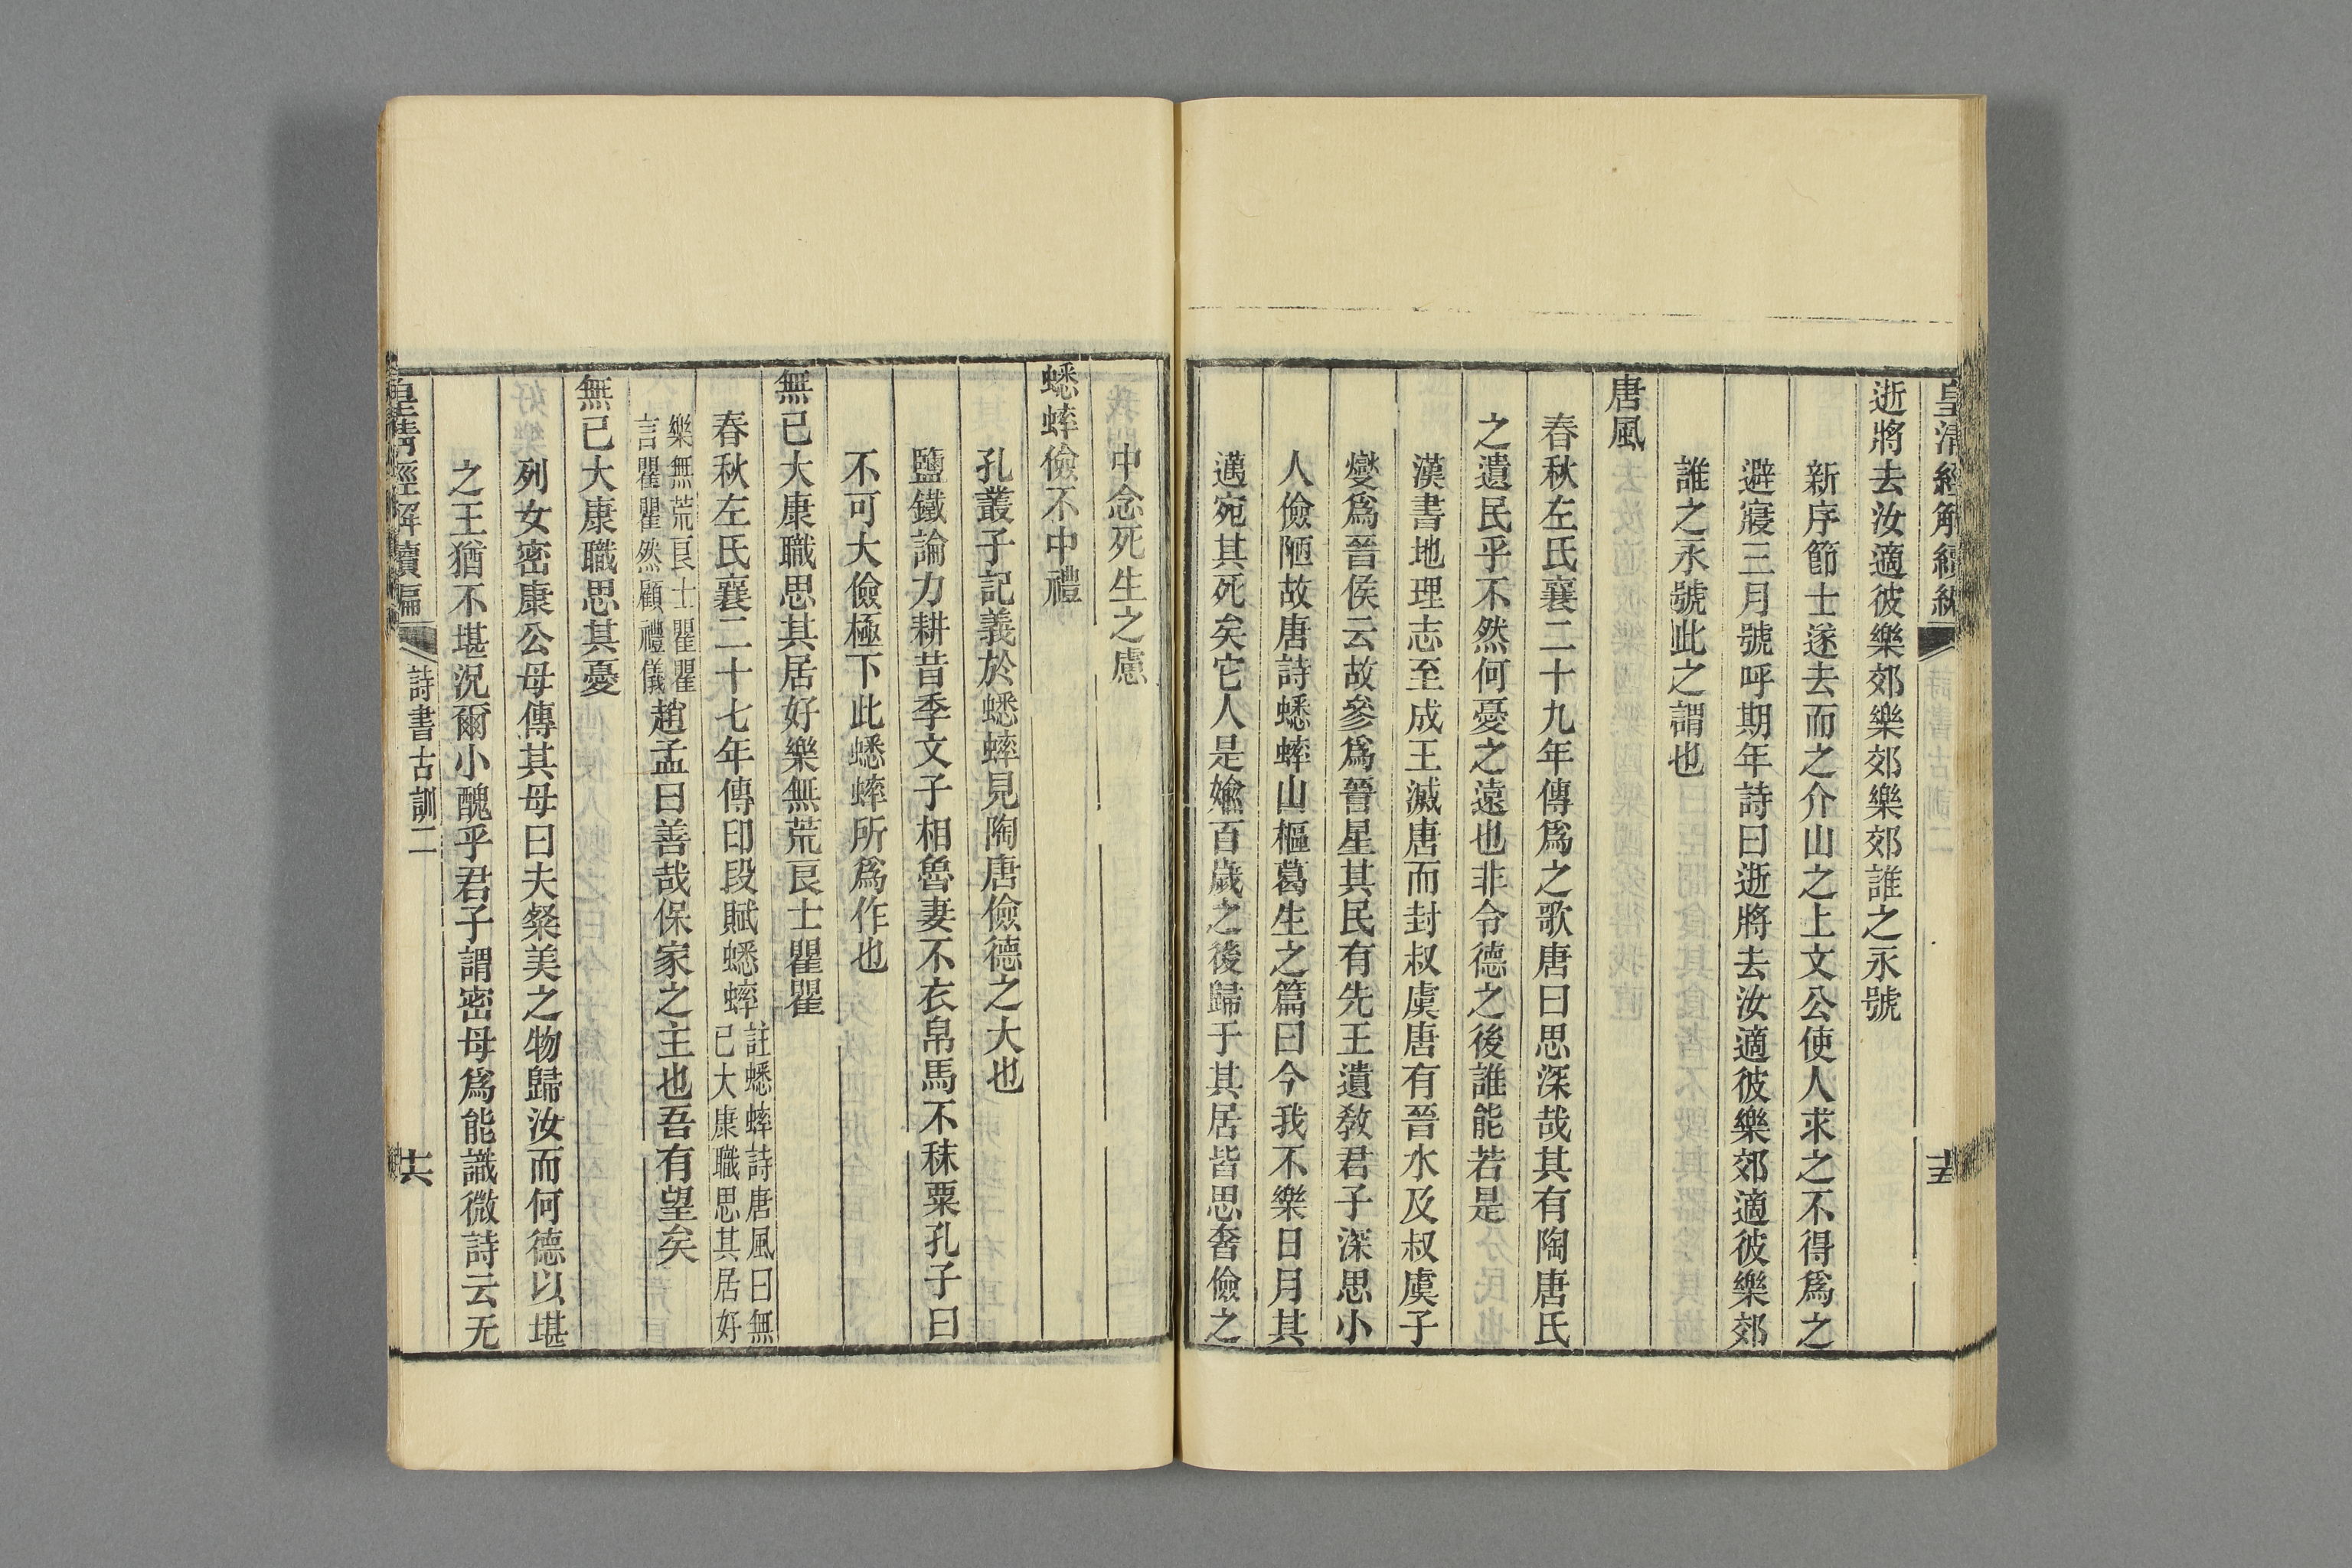 皇清經解續編
十五
逝將去汝適彼樂郊樂郊樂郊誰之永號
新序節士遂去而之介山之上文公使人求之不得爲之
避寢三月號呼期年詩曰逝將去汝適彼樂郊適彼樂郊
誰之永號此之謂也
唐風
春秋左氏襄二十九年傳爲之歌唐曰思深哉其有陶唐氏
之遺民乎不然何憂之遠也非令德之後誰能若是
漢書地理志至成王滅唐而封叔虞唐有晉水及叔虞子
燮爲晉侯云故參爲晉星其民有先王遺敎君子深思小
人儉陋故唐詩蟋蟀山樞葛生之篇曰今我不樂日月其
邁宛其死矣它人是媮百歲之後歸于其居皆思奢儉之
中念死生之慮
蟋蟀儉不中禮
孔叢子記義於蟋蟀見陶唐儉德之大也
鹽鐵論力耕昔季文子相魯妻不衣帛馬不秣粟孔子曰
不可大儉極下此蟋蟀所爲作也
無已大康職思其居好樂無荒良士瞿瞿
春秋左氏襄二十七年傳印段賦蟋蟀註蟋蟀詩唐風曰無
已大康職思其居好
樂無荒良士瞿瞿
言瞿瞿然顧禮儀趙孟曰善哉保家之主也吾有望矣
無已大康職思其憂
列女密康公母傳其母曰夫粲美之物歸汝而何德以堪
之王猶不堪況爾小醜乎君子謂密母爲能識微詩云无
皇清經解續編
詩書古訓二
十六